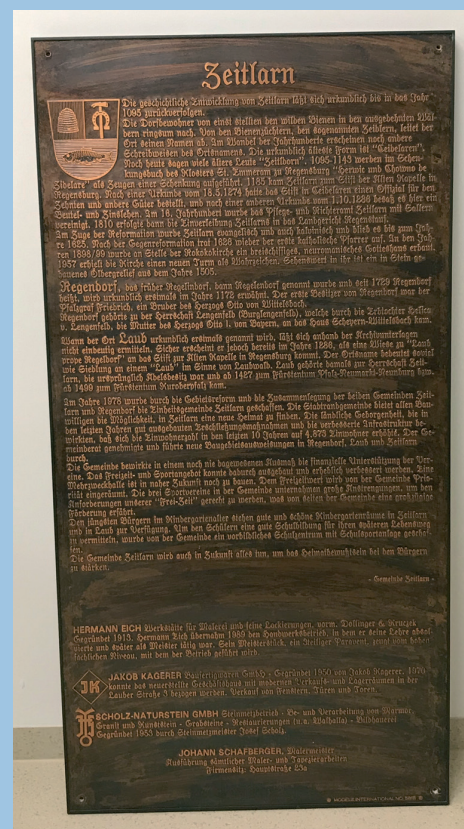 Zeitlarn
Die geschichtliche Entwicklung von Zeitlarn läßt sich urkundlich bis in das Jahr
1095 zurückverfolgen.
Die Dorfbewohner von einst stellten den wilden Bienen in den ausgedehnten Wäl-
dern ringsum nach. Von den Bienenzüchtern, den sogenannten Zeidlern, leitet der
Ort seinen Namen ab. Am Wandel der Jahrhunderte erscheinen noch andere
Schreibweisen des Ortsnamens. Die urkundlich älteste Form ist "Ceidelaren".
Noch heute sagen viele ältere Leute "Zeitlhorn". 1095-1143 werden im Schen-
kungsbuch des Klosters St. Emmeram zu Regensburg "Gerwie und Chonwo de
Zidelare" als Zeugen einer Schenkung aufgeführt. 1185 kam Zeitlarn zum Stift der Alten Kapelle in
Regensburg. Nach einer Urkunde vom 18.5.1274 hat das Stift in Zeitlarn einen Offizial für den
Zehnten und andere Güter bestellt, und nach einer anderen Urkunde vom 1.10.1286 besaß es hier ein
Beutel- und Zinslehen. Am 16. Jahrhundert wurde das Pfleg- und Richteramt Zeitlarn mit Sallern
vereinigt. 1810 erfolgte dann die Einverleibung Zeitlarns in das Landgericht Regenstauf.
Am Zuge der Reformation wurde Zeitlarn evangelisch und auch kalvinisch und blieb es bis zum Jah-
re 1625. Nach der Gegenreformation trat 1626 wieder der erste katholische Pfarrer auf. An den Jah-
ren 1898/99 wurde an Stelle der Rokokokirche ein dreischiffiges, neuromanisches Gotteshaus erbaut.
1957 erhielt die Kirche einen neuen Turm als Wahrzeichen. Sehenswert in ihr ist ein in Stein ge-
hauenes Ölbergrelief aus dem Jahre 1505.
Regendorf, das früher Regelindorf, dann Regelndorf genannt wurde und seit 1729 Regendorf
heißt, wird urkundlich erstmals im Jahre 1172 erwähnt. Der erste Besitzer von Regendorf war der
Pfalzgraf Friedrich, ein Bruder des Herzogs Otto von Wittelsbach.
Regendorf gehörte zu der Herrschaft Lengenfeld (Burglengenfeld), welche durch die Erbtochter Helica
v. Lengenfeld, die Mutter des Herzog Otto I. von Bayern, an das Haus Scheyern-Wittelsbach kam.
Wann der Ort Laub urkundlich erstmals genannt wird, läßt sich anhand der Archivunterlagen
nicht eindeutig ermitteln. Sicher erscheint er jedoch bereits im Jahre 1286, als eine Wiese zu "Laub
prope Regeldorf" an das Stift zur Alten Kapelle in Regensburg kommt. Der Ortsname bedeutet soviel
wie Siedlung an einem "Laub" im Sinne von Laubwald. Laub gehörte damals zur Herrschaft Zeit-
larn, die ursprünglich Adelssitz war und ab 1427 zum Fürstentum Pfalz-Neumarkt-Neunburg bzw.
ab 1499 zum Fürstentum Kuroberpfalz kam.
Am Jahre 1978 wurde durch die Gebietsreform und die Zusammenlegung der beiden Gemeinden Zeit-
larn und Regendorf die Einheitsgemeinde Zeitlarn geschaffen. Die Stadtrandgemeinde bietet allen Bau-
willigen die Möglichkeit, in Zeitlarn eine neue Heimat zu finden. Die ländliche Geborgenheit, die in
den letzten Jahren gut ausgebauten Erschließungsmaßnahmen und die verbesserte Infrastruktur be-
wirkten, daß sich die Einwohnerzahl in den letzten 10 Jahren auf 4.873 Einwohner erhöhte. Der Ge-
meinderat genehmigte und führte neue Baugebietsausweisungen in Regendorf, Laub und Zeitlarn
durch.
Die Gemeinde bewirkte in einem noch nie dagewesenen Ausmaß die finanzielle Unterstützung der Ver-
eine. Das Freizeit- und Sportangebot konnte dadurch ausgebaut und erheblich verbessert werden. Eine
Mehrzweckhalle ist in naher Zukunft noch zu bauen. Dem Freizeitwert wird von der Gemeinde Prio-
rität eingeräumt. Die drei Sportvereine in der Gemeinde unternehmen große Anstrengungen, um den
Anforderungen unserer "Frei-Zeit" gerecht zu werden, was von seiten der Gemeinde eine großzügige
Förderung erfährt.
Den jüngsten Bürgern im Kindergartenalter stehen gute und schöne Kindergartenräume in Zeitlarn
und in Laub zur Verfügung. Um den Schülern eine gute Schulbildung für ihren späteren Lebensweg
zu vermitteln, wurde von der Gemeinde ein vorbildliches Schulzentrum mit Schulsportanlage geschaf-
fen.
Die Gemeinde Zeitlarn wird auch in Zukunft alles tun, um das Heimatbewußtsein bei den Bürgern
zu stärken.
- Gemeinde Zeitlarn -
HERMANN EICH Werkstätte für Malerei und feine Lackierungen, vorm. Dollinger & Kruczek
Gegründet 1913. Hermann Eich übernahm 1989 den Handwerksbetrieb, in dem er seine Lehre absol-
vierte und später als Meister tätig war. Sein Meisterstück, ein 3teiliger Paravent, zeugt vom hohen
fachlichen Niveau, mit dem der Betrieb geführt wird.
JK
JAKOB KAGERER Baufertigwaren GmbH - Gegründet 1950 von Jakob Kagerer. 1979
konnte das neuerstellte Geschäftshaus mit modernen Verkaufs- und Lagerräumen in der
Lauber Straße 1 bezogen werden. Verkauf von Fenstern, Türen und Toren.
SCHOLZ-NATURSTEIN GMBH Steinmetzbetrieb - Be- und Verarbeitung von Marmor,
Granit und Kunststein - Grabsteine - Restaurierungen (u.a. Walhalla) - Bildhauerei
Gegründet 1953 durch Steinmetzmeister Josef Scholz.
JOHANN SCHAFBERGER, Malermeister
Ausführung sämtlicher Maler- und Tapezierarbeiten
Firmensitz: Hauptstraße 23a